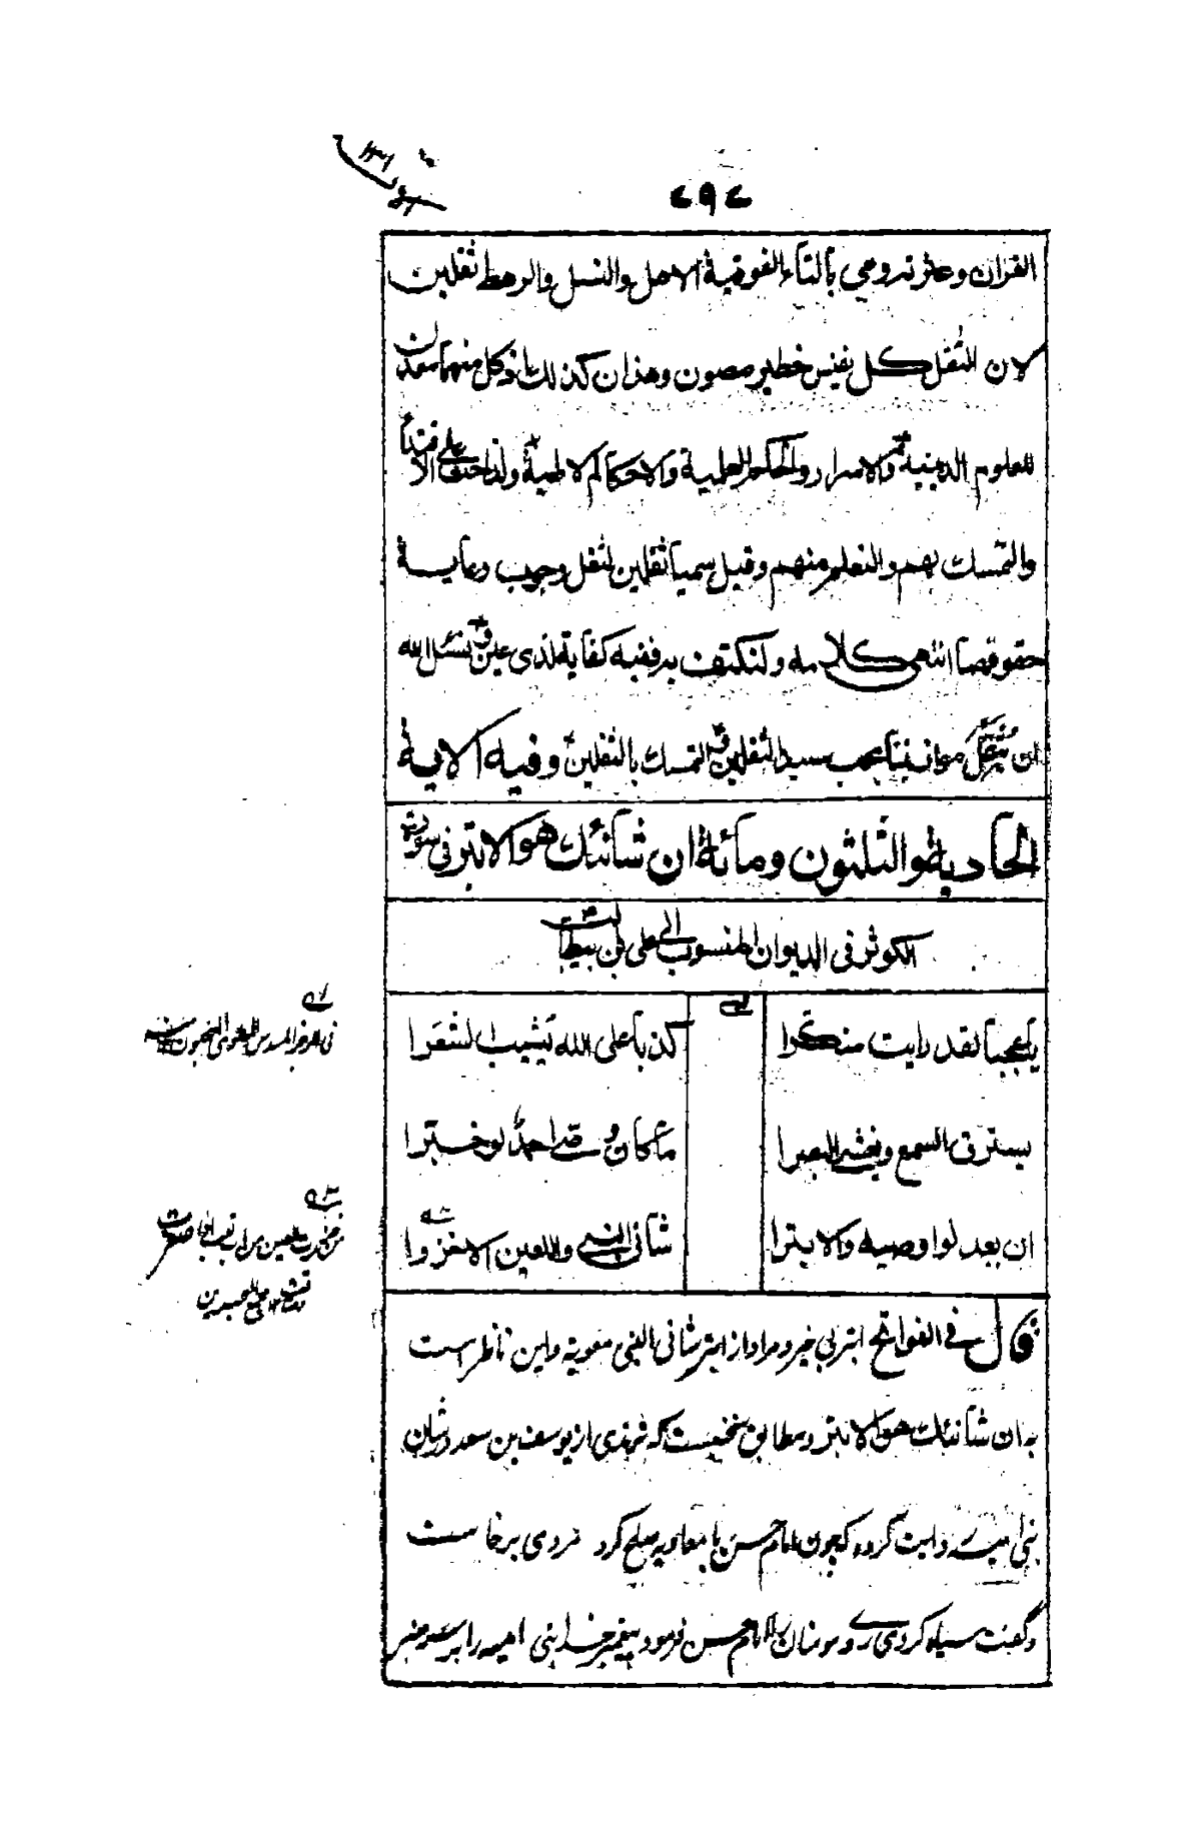 ٧٩٧
القران وعترته وهي بالتاء الفوقية الاهل والنسل والرهط ثقلين
لان الثقل كل نفيس خطير مصون وهذان كذلك اذ كل منهما معدن
للعلوم الدينية والاسرار والحكم العلمية والاحكام الالهية ولذا حث على الاقتداء
والتمسك بهم والتعلم منهم وقيل سميا ثقلين لثقل وجوب رعاية
حقوقهما انتهى كلامه ولنكتف به ففيه كفاية لذى عين نسئل الله
ان معاف فينا بحب سيد الثقلين والتمسك بالثقلين وفيه الاية
الحادية والثلثون ومائة ان شانئك هو الابتر فى سورة
الكوثر فى الديوان المنسوب الى على بن ابيطالب
يا عجبا لقد رايت منكرا
كذبا على الله يشيب الشعرا
يسترق السمع ويغشى البصرا
ما كان يرضى احمد لو خبرا
ان يعدلوا وصيه والابترا
شانى النبى واللعين الاخزرا
قال فى الفواتح ابتر بى خير ومراد از ابتر شانى النبى معوية واين ناظر است
به ان شانئك هو الابتر ومطابق سخنيست كه ترمذى از يوسف بن سعد در شان
بنى اميه روايت كرده كه چون امام حسن با معاويه صلح كرد مردى برخاست
وگفت سياه كردى روى مومنان را امام حسن فرمود پيغمبر خدا بنى اميه را بر سر منبر